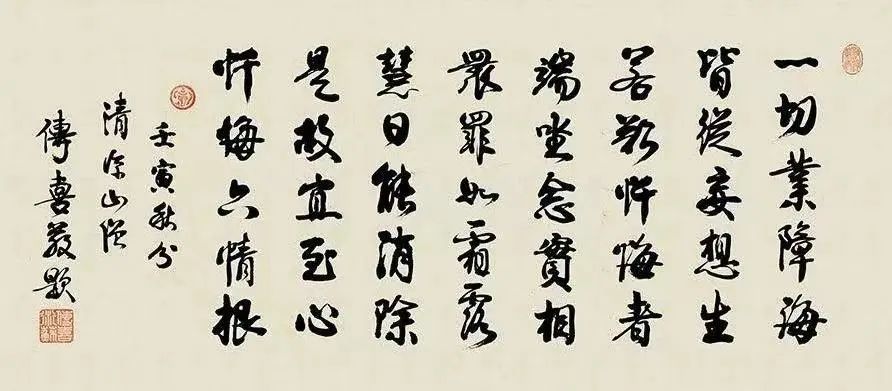 一切業障海
皆從妄想生
若欲懺悔者
端坐念實相
眾罪如霜露
慧日能消除
是故宜至心
懺悔六情根
壬寅秋分
清涼山僧
傳喜敬題